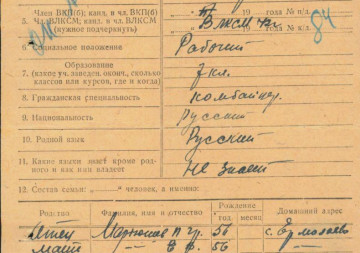 Член ВКП(б), канд. в чл. ВКП(б) 19 года № п/б.
5. Член ВЛКСМ; канд. в чл. ВЛКСМ ВЛКСМ 19 года № ч/б.
(нужное подчеркнуть) 84
6. Социальное положение Рабочий
Образование
7. (какие уч. заведен. окончил, сколько 7 кл.
классов или курсов, где и когда)
8. Гражданская специальность комбайнер.
9. Национальность Русский
10. Родной язык Русский
11. Какие языки знает кроме род-
ного и как ими владеет Не знает
12. Состав семьи: „ “ человек, а именно:
Родство Фамилия, имя и отчество Рождение Домашний адрес
год месяц
Отец гр. 56 с. Ермолаево
Мать 56